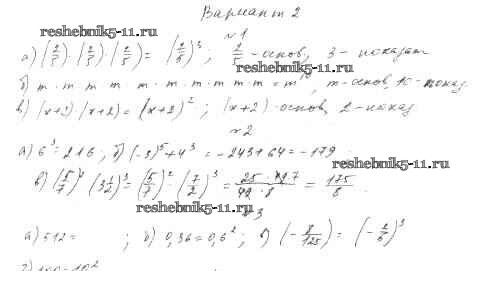 Вариант 2
reshebnik5-11.ru
№1
а) (2/5)·(2/5)·(2/5) = (2/5)³; 2/5 - основ, 3 - показат
reshebnik5-11.ru
б) m m m m m m m m m m = m¹⁰, m - основ, 10 - показ.
в) (x+2)(x+2) = (x+2)²; (x+2) - основ, 2 - показ
№2
а) 6³ = 216; б) (-3)⁵ + 4³ = -243 + 64 = -179
reshebnik5-11.ru
в) (5/7)² (3 1/2)³ = (5/7)² · (7/2)³ = 175/8
reshebnik5-11.ru
3
а) 512 = ; б) 0,36 = 0,6²; в) (-8/125) = (-2/5)³
г) 100 = 10²